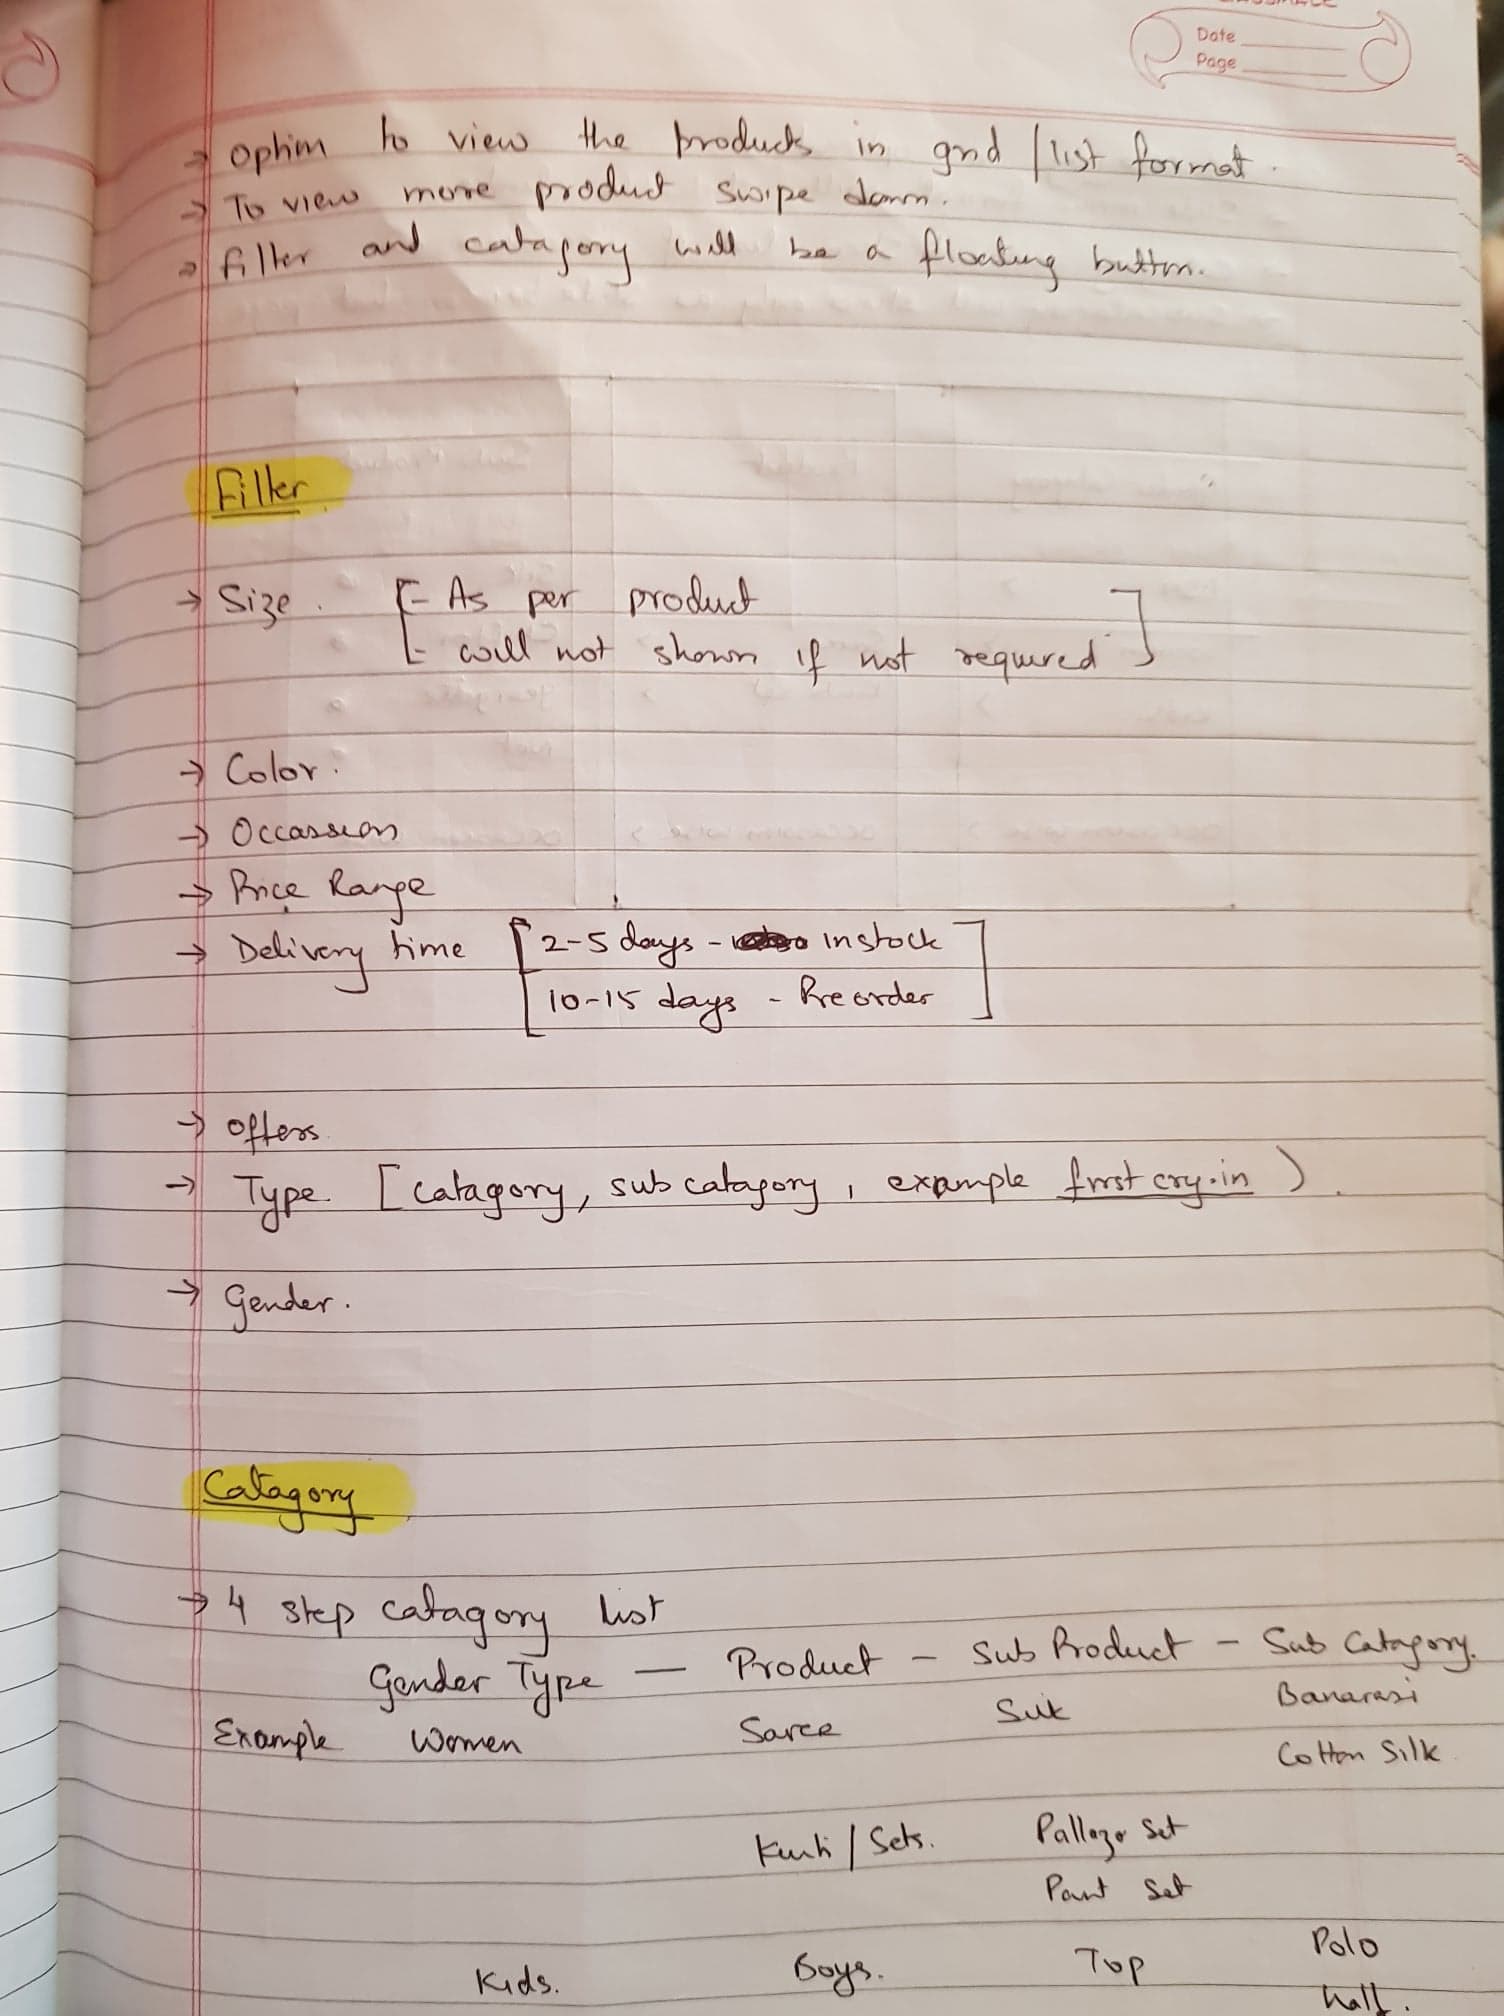 Date
Page
→ Option to view the products in grid / list format.
→ To view more product swipe down.
→ filter and catagory will be a floating button.
Filter
→ Size. [- As per product
- will not shown if not required ]
→ Color.
→ Occassion
→ Price Range
→ Delivery time [ 2-5 days - instock
10-15 days - Preorder ]
→ offers
→ Type [ catagory, sub catagory, example first cry.in )
→ Gender.
Catagory
→ 4 step catagory list
Gender Type — Product - Sub Product - Sub Catagory.
Example Women Saree Silk Banarasi
Cotton Silk
Kurti / Sets. Pallazo Set
Pant Set
Kids. Boys. Top Polo
half.